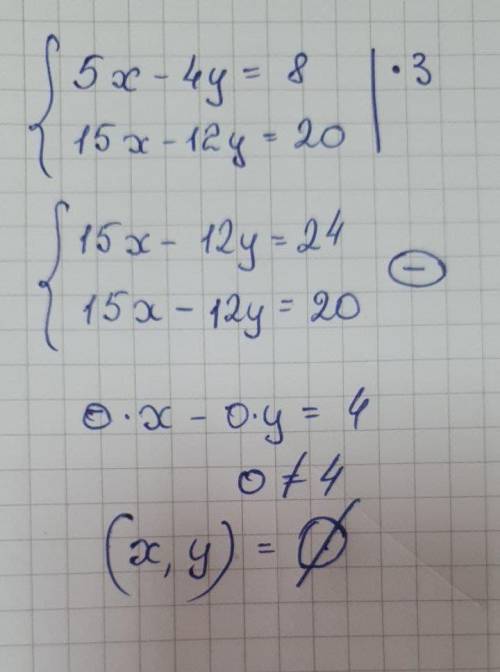 5x - 4y = 8 | · 3
15x - 12y = 20
15x - 12y = 24
15x - 12y = 20 ⊖
0 · x - 0 · y = 4
0 ≠ 4
(x, y) = ∅